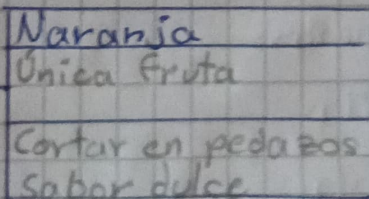 Naranja
Única fruta
Cortar en pedazos
Sabor dulce